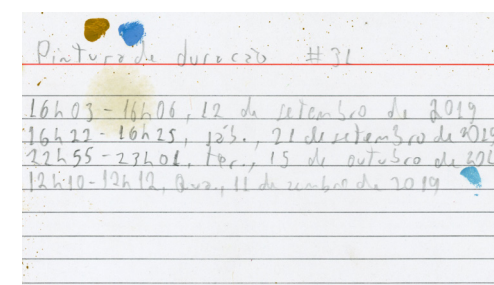 Pintura de duração #31
16h03 - 16h06, 12 de setembro de 2019
16h22 - 16h25, sáb., 21 de setembro de 2019
22h55 - 23h01, ter., 15 de outubro de
12h10 - 12h12, Qua., 11 de de 2019